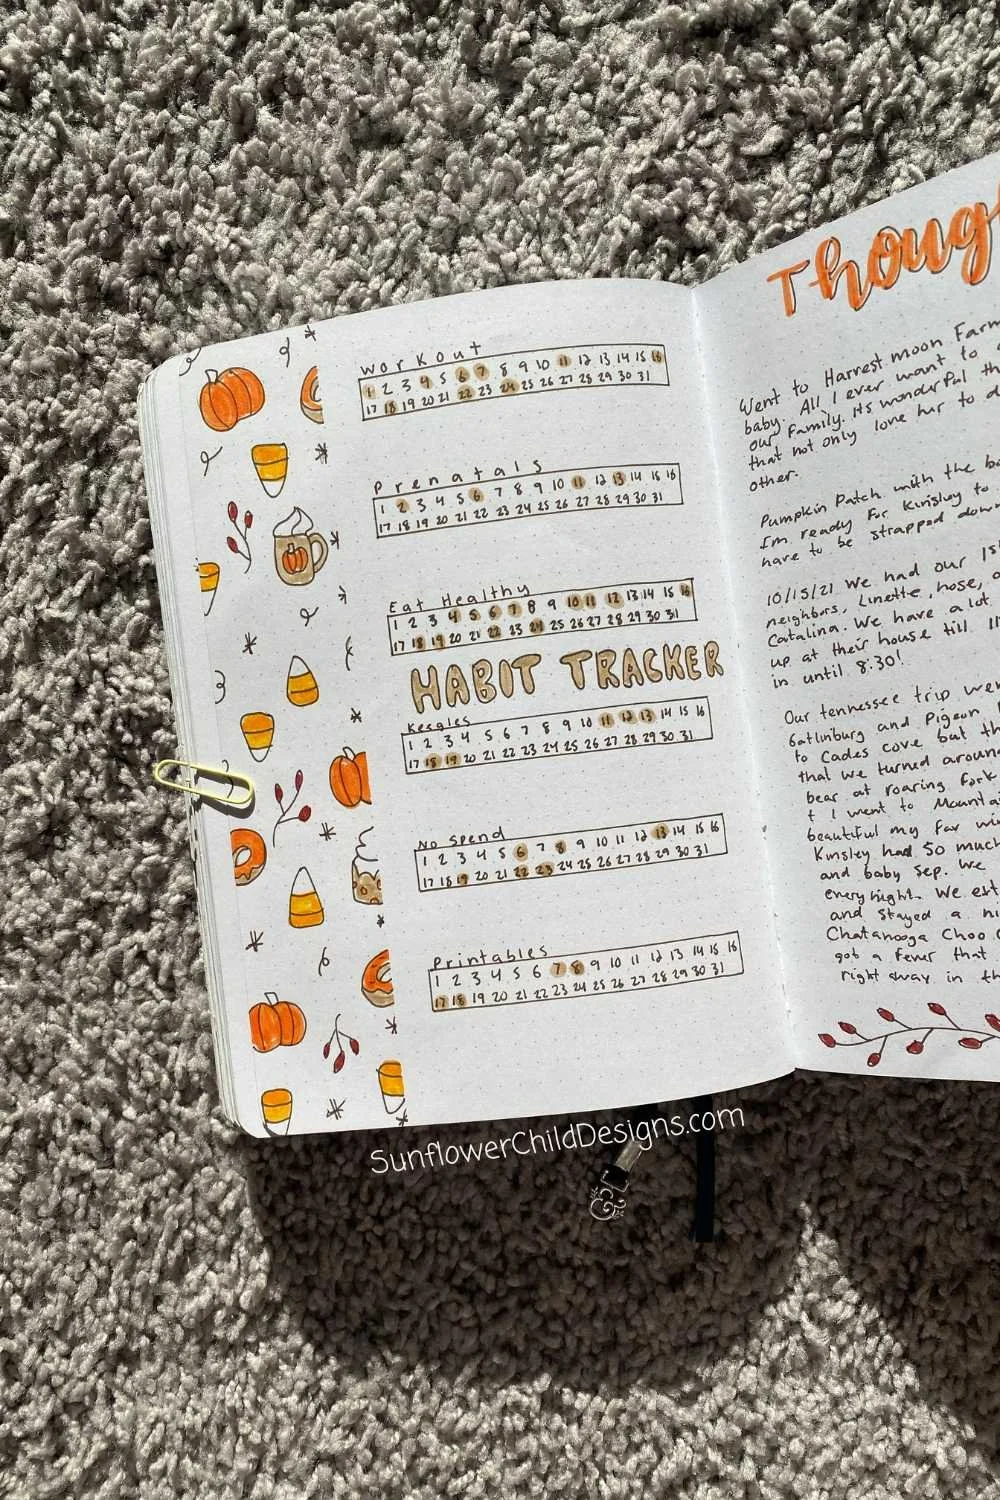 Workout
1 2 3 4 5 6 7 8 9 10 11 12 13 14 15 16
17 18 19 20 21 22 23 24 25 26 27 28 29 30 31
Prenatals
1 2 3 4 5 6 7 8 9 10 11 12 13 14 15 16
17 18 19 20 21 22 23 24 25 26 27 28 29 30 31
Eat Healthy
1 2 3 4 5 6 7 8 9 10 11 12 13 14 15 16
17 18 19 20 21 22 23 24 25 26 27 28 29 30 31
HABIT TRACKER
Keegles
1 2 3 4 5 6 7 8 9 10 11 12 13 14 15 16
17 18 19 20 21 22 23 24 25 26 27 28 29 30 31
No Spend
1 2 3 4 5 6 7 8 9 10 11 12 13 14 15 16
17 18 19 20 21 22 23 24 25 26 27 28 29 30 31
Printables
1 2 3 4 5 6 7 8 9 10 11 12 13 14 15 16
17 18 19 20 21 22 23 24 25 26 27 28 29 30 31
Thoug
Went to Harvest moon Farm
baby. All I ever want to
our family. Its wonderful th
that not only love her to
other.
Pumpkin Patch with the
I'm ready for Kinsley to
have to be strapped down
10/15/21 We had our 1st
neighbors, Linette, Jose,
Catalina. We have a lot
up at their house till 11
in until 8:30!
Our tennessee trip wen
Gatlinburg and Pigeon
to Cades cove but th
that we turned around
bear at roaring fork
+ I went to Mountai
beautiful my fav win
Kinsley had so much
and baby sep. We
every night. We
and stayed a ni
Chatanooga Choo
got a fever that
right away in th
SunflowerChildDesigns.com